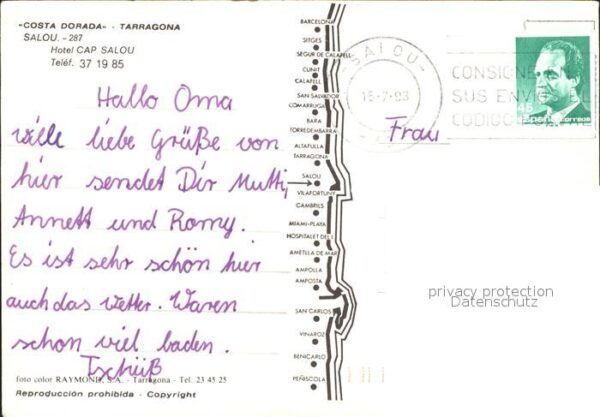 "COSTA DORADA" - TARRAGONA
SALOU. - 287
Hotel CAP SALOU
Teléf. 37 19 85
Hallo Oma
viele liebe Grüße von
hier sendet Dir Mutti,
Annett und Romy.
Es ist sehr schön hier
auch das Wetter. Waren
schon viel baden.
Tschüß
foto color RAYMOND, S.A. - Tarragona - Tel. 23 45 25
Reproducción prohibida - Copyright
BARCELONA
SITGES
SEGUR DE CALAFELL
CUNIT
CALAFELL
SAN SALVADOR
COMARRUGA
BARA
TORREDEMBARRA
ALTAFULLA
TARRAGONA
SALOU
VILAFORTUNY
CAMBRILS
MIAMI-PLAYA
HOSPITALET DEL I.
AMETLLA DE MAR
AMPOLLA
AMPOSTA
SAN CARLOS
VINAROZ
BENICARLO
PEÑISCOLA
SALOU
16-7-93
CONSIGNE
SUS ENVI
CODIGO
45
España correos
Frau
privacy protection
Datenschutz